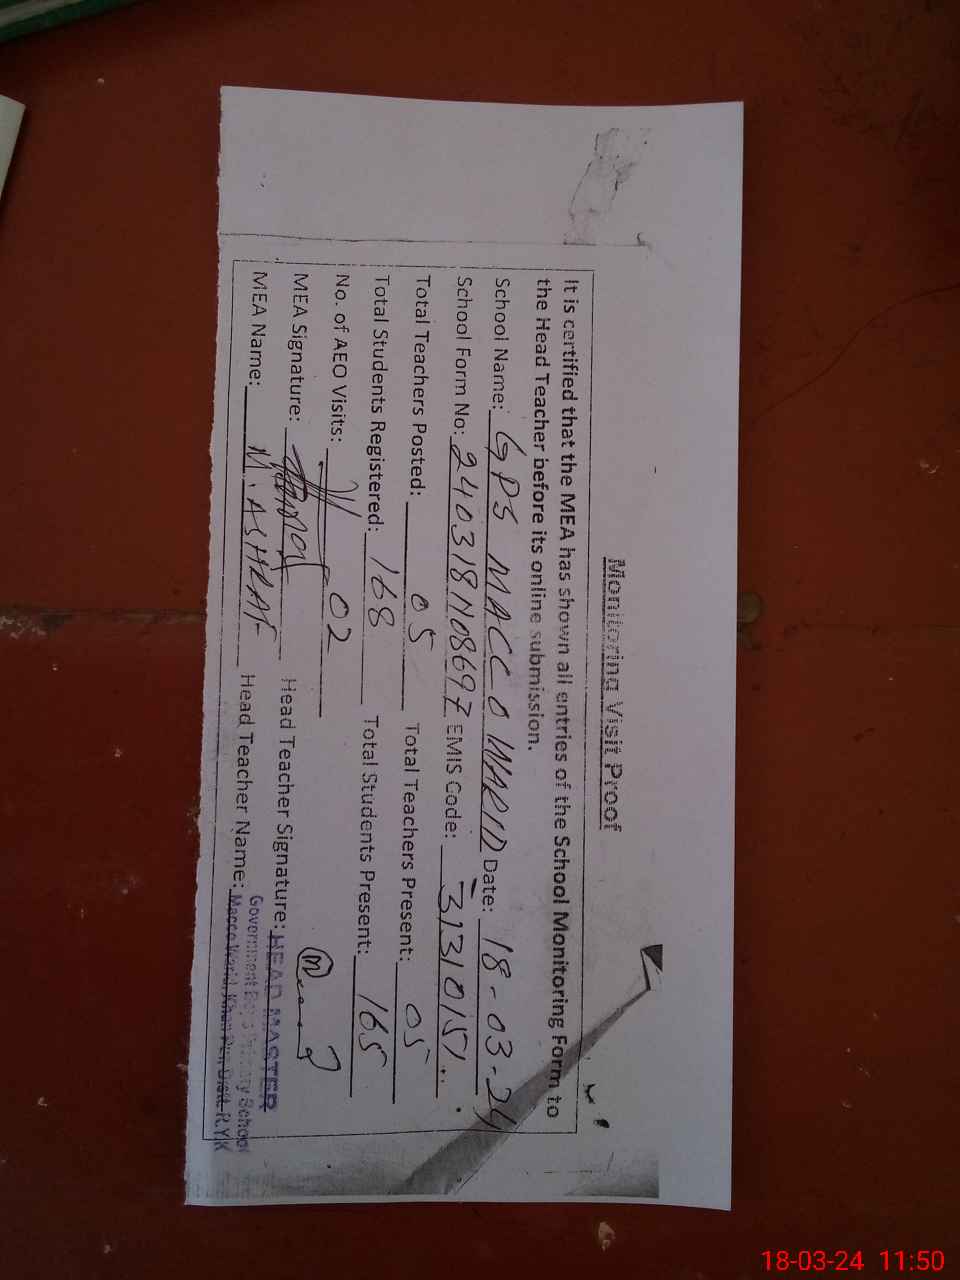 Monitoring Visit Proof
It is certified that the MEA has shown all entries of the School Monitoring Form to
the Head Teacher before its online submission.
School Name: GPS MACCO WARID Date: 18-03-24
School Form No: 240318110869 7 EMIS Code: 31310151
Total Teachers Posted: 05 Total Teachers Present: 05
Total Students Registered: 168 Total Students Present: 165
No. of AEO Visits: 02
MEA Signature: Head Teacher Signature: HEAD MASTER
MEA Name: M. ASHRAF Head Teacher Name: Government Boys Primary School
Macco Warid, Khan Pur, Distt. R.Y.K
18-03-24 11:50